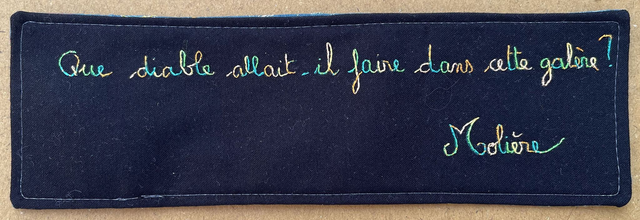 Que diable allait-il faire dans cette galère?
Molière